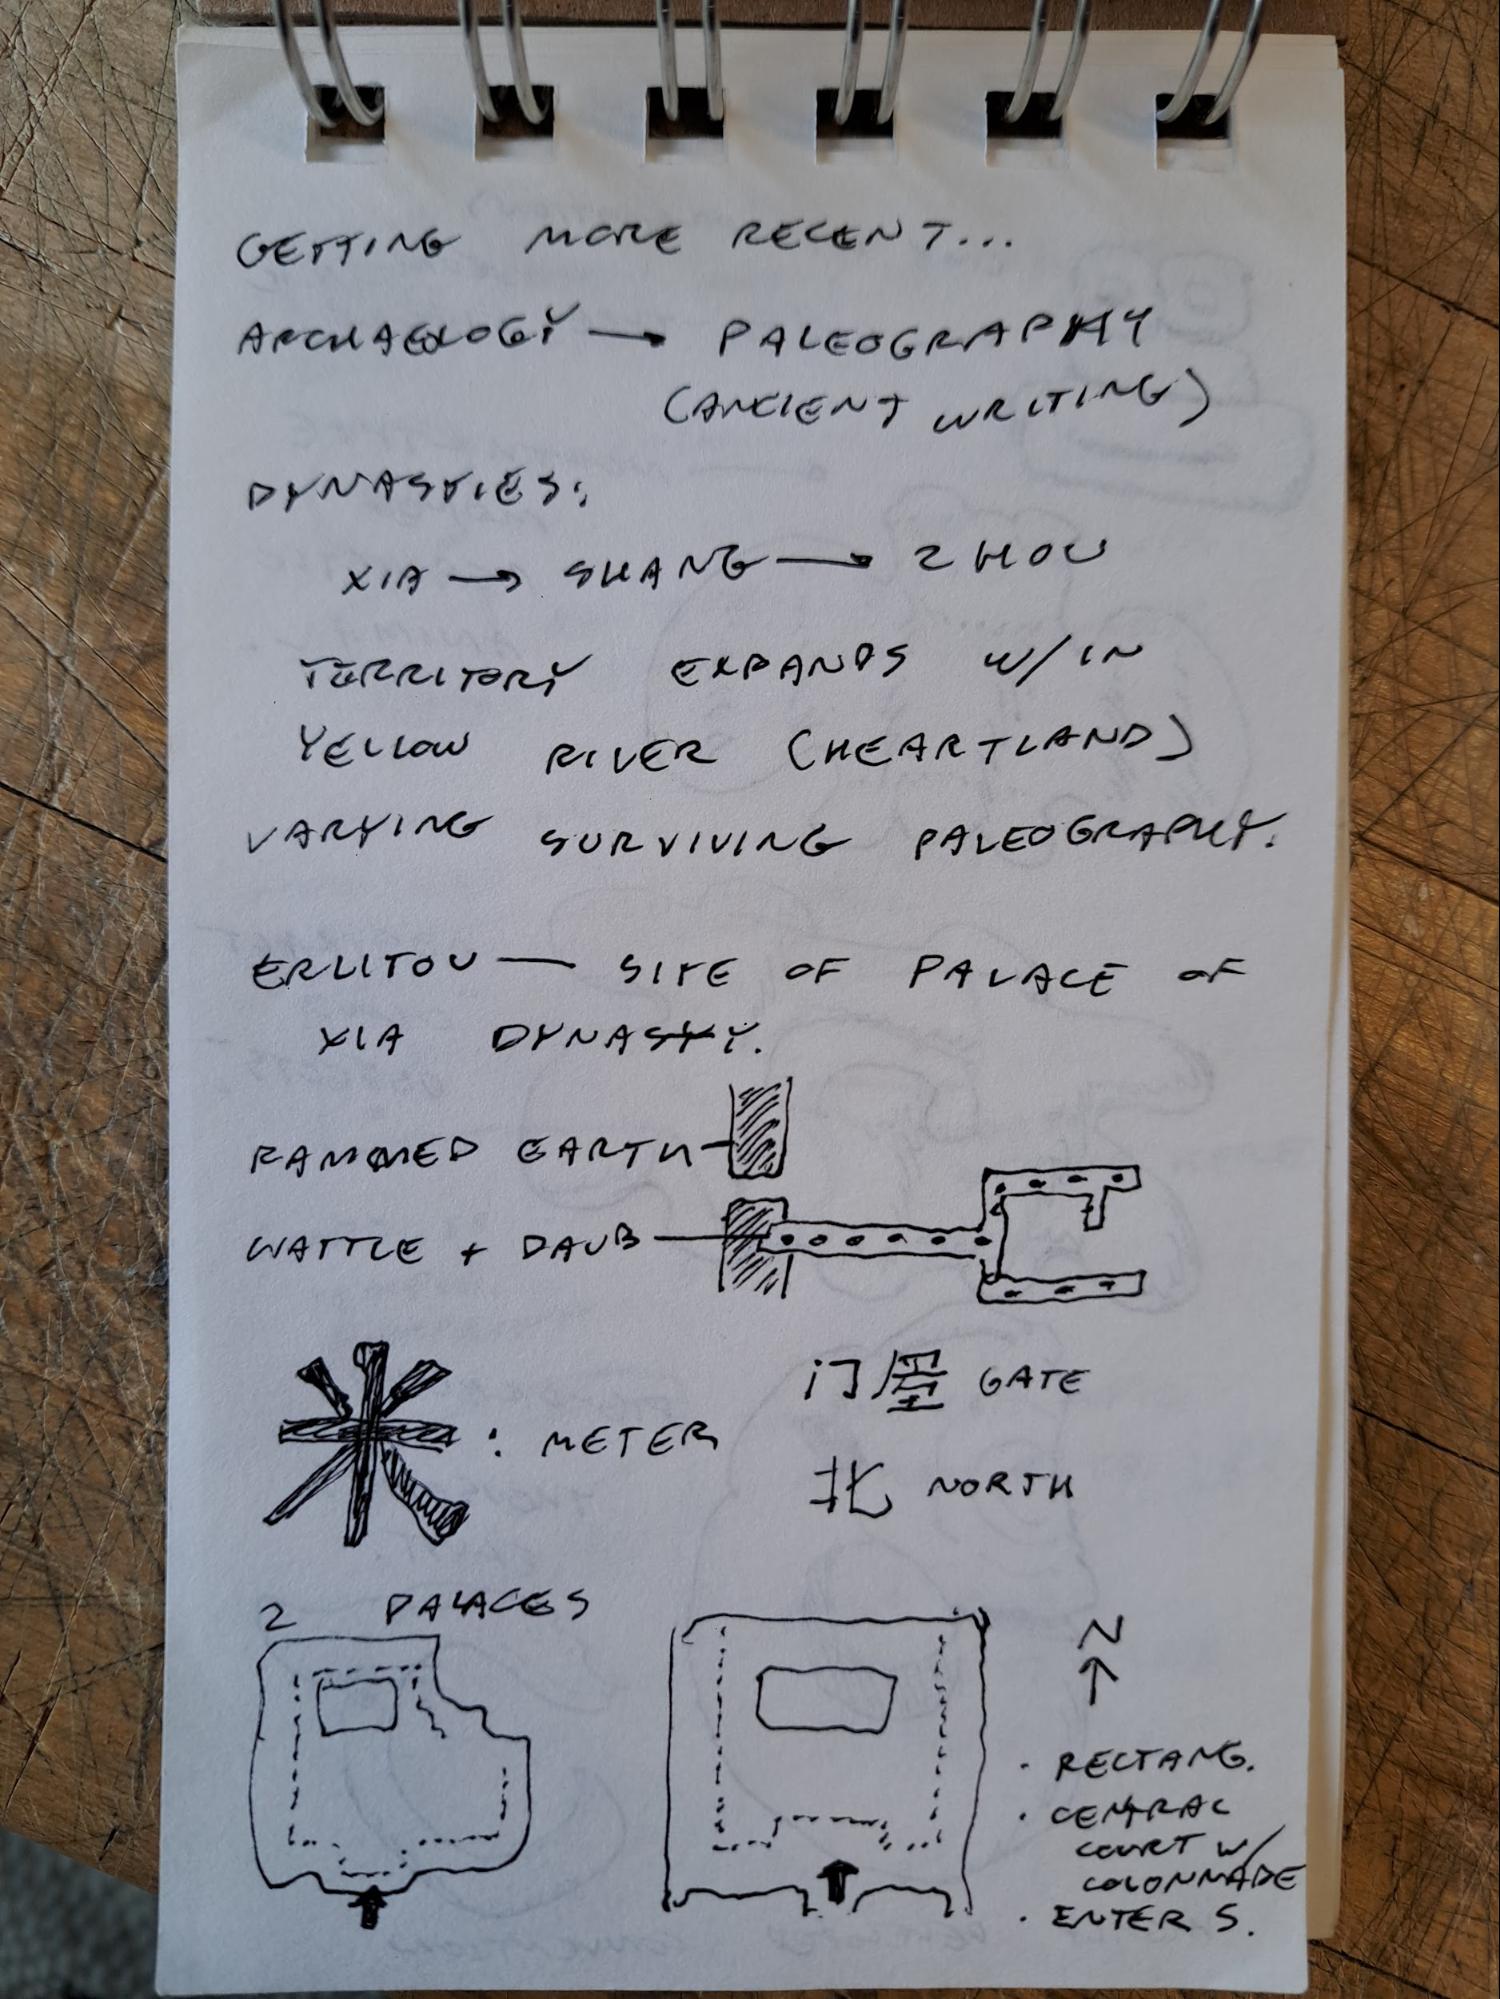 GETTING MORE RECENT...
ARCHAEOLOGY → PALEOGRAPHY
(ANCIENT WRITING)
DYNASTIES:
XIA → SHANG → ZHOU
TERRITORY EXPANDS W/IN
YELLOW RIVER (HEARTLAND)
VARYING SURVIVING PALEOGRAPHY.
ERLITOU — SITE OF PALACE OF
XIA DYNASTY.
RAMMED EARTH
WATTLE + DAUB
米 : METER
门 GATE
北 NORTH
2 PALACES
N
· RECTANG.
· CENTRAL
COURT W/
COLONNADE
· ENTER S.